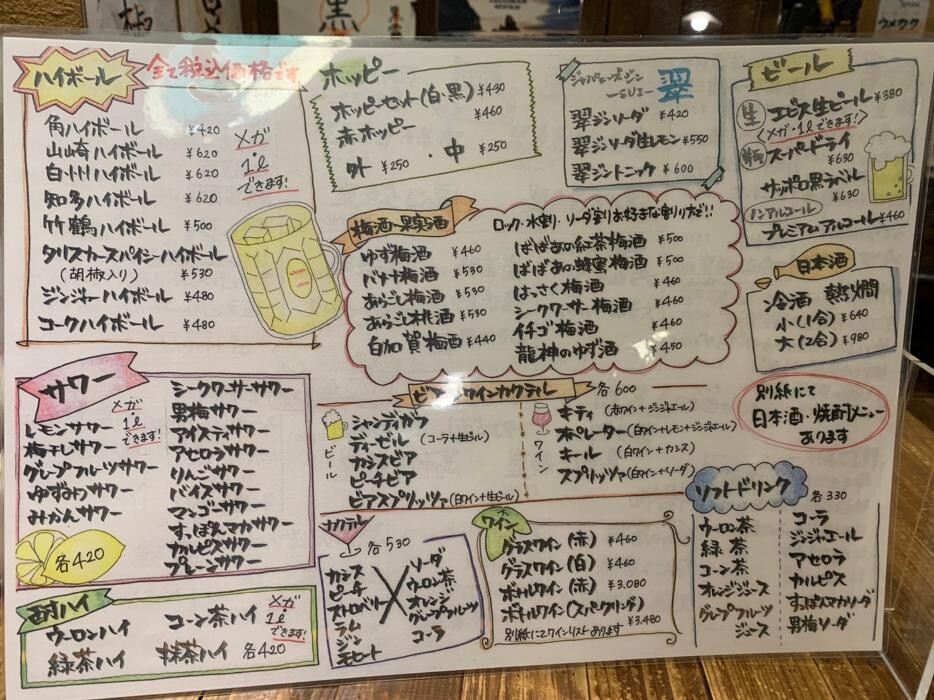 ハイボール
全て税込価格です
角ハイボール ¥420
山崎ハイボール ¥620
白州ハイボール ¥620
知多ハイボール ¥620
竹鶴ハイボール ¥500
タリスカースパイシーハイボール
(胡椒入り) ¥530
ジンジャーハイボール ¥480
コークハイボール ¥480
メガ
1ℓ
できます!
ホッピー
ホッピーセット(白・黒) ¥430
赤ホッピー ¥460
外 ¥250 ・ 中 ¥250
ジャパニーズジン
ーSUIー 翠
翠ジンソーダ ¥420
翠ジンソーダ生レモン ¥550
翠ジントニック ¥600
ビール
生 エビス生ビール ¥380
<メガ・1ℓできます!>
瓶 スーパードライ
¥630
サッポロ黒ラベル
¥630
ノンアルコール
プレミアムアルコール ¥460
梅酒・果実酒
ロック・水割り・ソーダ割りお好きな割り方で!!
ゆず梅酒 ¥460
バナナ梅酒 ¥530
あらごし梅酒 ¥530
あらごし桃酒 ¥530
白加賀梅酒 ¥440
ばばあの紅茶梅酒 ¥500
ばばあの蜂蜜梅酒 ¥500
はっさく梅酒 ¥460
シークワーサー梅酒 ¥460
イチゴ梅酒 ¥460
龍神のゆず酒 ¥450
日本酒
冷酒 熱燗
小(1合) ¥640
大(2合) ¥980
別紙にて
日本酒・焼酎メニュー
あります
サワー
メガ
1ℓ
できます!
レモンサワー
梅干しサワー
グレープフルーツサワー
ゆずみつサワー
みかんサワー
各420
シークワーサーサワー
男梅サワー
アイスティサワー
アセロラサワー
りんごサワー
バイスサワー
マンゴーサワー
すっぽんマカサワー
カルピスサワー
プレーンサワー
ビア・ワインカクテル 各600
ビール
シャンディガフ
ディーゼル (コーラ+生ビール)
カシスビア
ピーチビア
ビアスプリッツァ(白ワイン+生ビール)
ワイン
キティ (赤ワイン+ジンジャエール)
オペレーター(白ワイン+レモン+ジンジャエール)
キール (白ワイン+カシス)
スプリッツァ(白ワイン+ソーダ)
カクテル 各530
カシス
ピーチ
ストロベリー
ラム
ジン
モヒート
ソーダ
ウーロン茶
オレンジ
グレープフルーツ
コーラ
ワイン
グラスワイン(赤) ¥460
グラスワイン(白) ¥460
ボトルワイン(赤) ¥3.080
ボトルワイン(スパークリング)
¥3.480
別紙にてワインリストあります
ソフトドリンク 各330
ウーロン茶
緑茶
コーン茶
オレンジジュース
グレープフルーツ
ジュース
コーラ
ジンジャエール
アセロラ
カルピス
すっぽんマカソーダ
男梅ソーダ
酎ハイ
ウーロンハイ コーン茶ハイ
緑茶ハイ 抹茶ハイ 各420
メガ
1ℓ
できます!